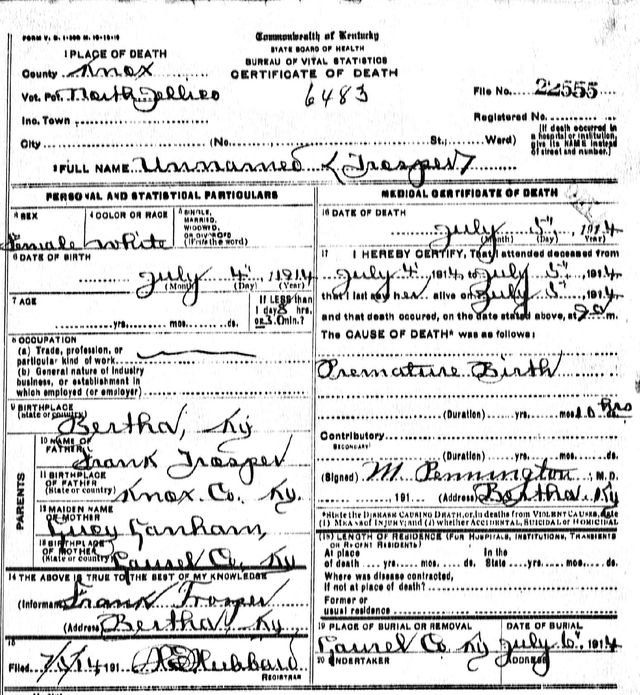 FORM V. S. 1-500 M. 10-12-10
Commonwealth of Kentucky
STATE BOARD OF HEALTH
BUREAU OF VITAL STATISTICS
CERTIFICATE OF DEATH
1 PLACE OF DEATH
County Knox
Vot. Pct. North Jellico
6483
File No. 22555
Inc. Town
Registered No.
City (No. St.; Ward)
(If death occurred in a hospital or institution, give its NAME instead of street and number.)
2 FULL NAME Unnamed ( Trosper )
PERSONAL AND STATISTICAL PARTICULARS
3 SEX Female
4 COLOR OR RACE White
5 SINGLE, MARRIED, WIDOWED, OR DIVORCED (Write the word)
6 DATE OF BIRTH
July 4", 1914
(Month) (Day) (Year)
7 AGE
yrs. mos. ds.
If LESS than
1 day 8 hrs.
or 30 min.?
8 OCCUPATION
(a) Trade, profession, or
particular kind of work
(b) General nature of industry
business, or establishment in
which employed (or employer)
9 BIRTHPLACE
(State or country) Bertha, Ky
PARENTS
10 NAME OF FATHER Frank Trosper
11 BIRTHPLACE OF FATHER (State or country) Knox Co. Ky.
12 MAIDEN NAME OF MOTHER Lucy Lanham,
13 BIRTHPLACE OF MOTHER (State or country) Laurel Co, Ky
14 THE ABOVE IS TRUE TO THE BEST OF MY KNOWLEDGE
(Informant) Frank Trosper
(Address) Bertha, Ky.
15
Filed 7/5/14 191 Hubbard
REGISTRAR
MEDICAL CERTIFICATE OF DEATH
16 DATE OF DEATH
July 5", 1914
(Month) (Day) (Year)
17 I HEREBY CERTIFY, That I attended deceased from
July 4" 1914 to July 5" 1914
that I last saw her alive on July 5" 1914
and that death occured, on the date stated above, at m.
The CAUSE OF DEATH* was as follows:
Premature Birth
(Duration) yrs. mos. 10 hrs
Contributory
SECONDARY
(Duration) yrs. mos. ds.
(Signed) M. Pennington M. D.
191 (Address) Bertha, Ky
*State the DISEASE CAUSING DEATH, or, in deaths from VIOLENT CAUSES, state
(1) MEANS OF INJURY; and (2) whether ACCIDENTAL, SUICIDAL or HOMICIDAL
18 LENGTH OF RESIDENCE (FOR HOSPITALS, INSTITUTIONS, TRANSIENTS
OR RECENT RESIDENTS)
At place In the
of death yrs. mos. ds. State yrs. mos. ds.
Where was disease contracted,
If not at place of death?
Former or
usual residence
19 PLACE OF BURIAL OR REMOVAL DATE OF BURIAL
Laurel Co Ky July 6", 1914
20 UNDERTAKER ADDRESS